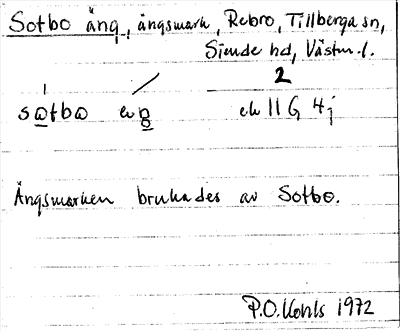 Sotbo äng, ängsmark, Rebro, Tillberga sn,
Siende hd, Västm. l.
2
sɷtba eŋ ek 11 G 4 j
Ängsmarken brukades av Sotbo.
P.O. Kohls 1972